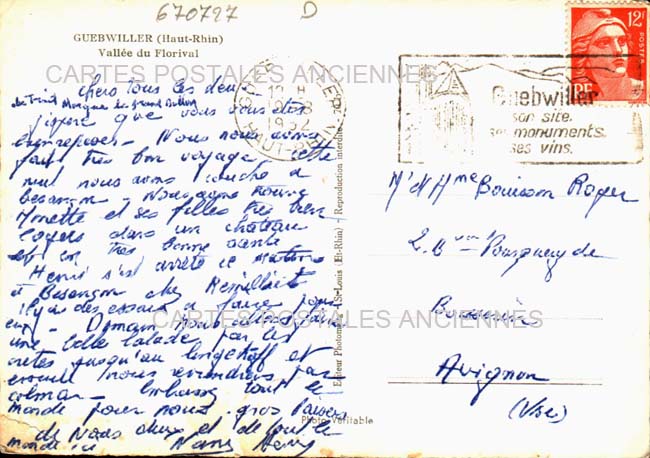 670727 D
GUEBWILLER (Haut-Rhin)
Vallée du Florival
CARTES POSTALES ANCIENNES
Chers tous les deux
J'espère que vous vous êtes
bien reposés - Nous nous avons
fait très bon voyage cette
nuit nous avons couché à
Besançon - Nous avons trouvé
Annette et ses filles très bien
logées dans un château
et en très bonne santé
Henri s'est arrêté ce matin
à Besançon chez
il y a des essais à faire pour
eux - Demain nous
une belle balade par les
crêtes jusqu'au et
ensuite nous reviendrons par
Colmar - Embrassez tout le
monde pour nous. gros baisers
de nous deux et de tout le
monde ici
12 F
POSTES
RF
1952
HAUT-RHIN
Guebwiller
son site.
ses monuments.
ses vins.
Mr et Mme Bouisson Roger
Avignon
(Vse)
CARTES POSTALES ANCIENNES
Editeur St-Louis (Ht-Rhin) - Reproduction interdite
Photo Véritable